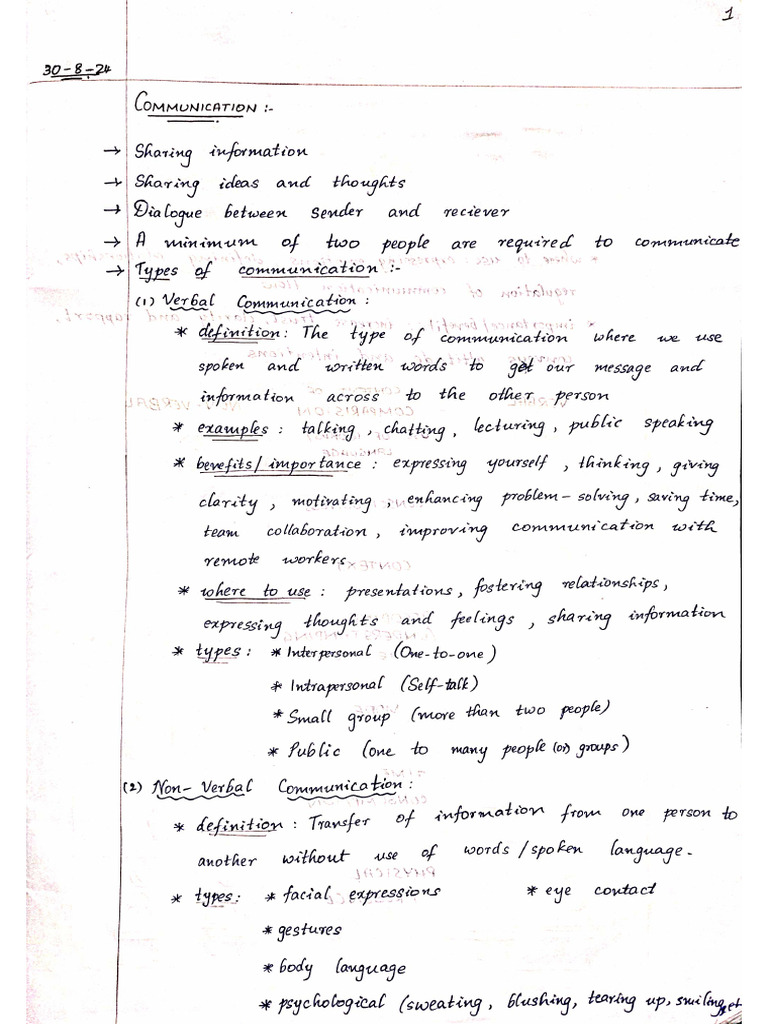 1
30-8-24
COMMUNICATION :-
→ Sharing information
→ Sharing ideas and thoughts
→ Dialogue between sender and reciever
→ A minimum of two people are required to communicate
→ Types of communication :-
(1) Verbal Communication :
* definition : The type of communication where we use
spoken and written words to get our message and
information across to the other person
* examples : talking , chatting , lecturing , public speaking
* benefits/importance : expressing yourself , thinking , giving
clarity , motivating , enhancing problem-solving , saving time,
team collaboration , improving communication with
remote workers
* where to use : presentations , fostering relationships ,
expressing thoughts and feelings , sharing information
* types : * Interpersonal (One-to-one)
* Intrapersonal (Self-talk)
* Small group (more than two people)
* Public (one to many people (or) groups)
(2) Non-Verbal Communication :
* definition : Transfer of information from one person to
another without use of words/spoken language.
* types : * facial expressions * eye contact
* gestures
* body language
* psychological (sweating , blushing , tearing up , smiling